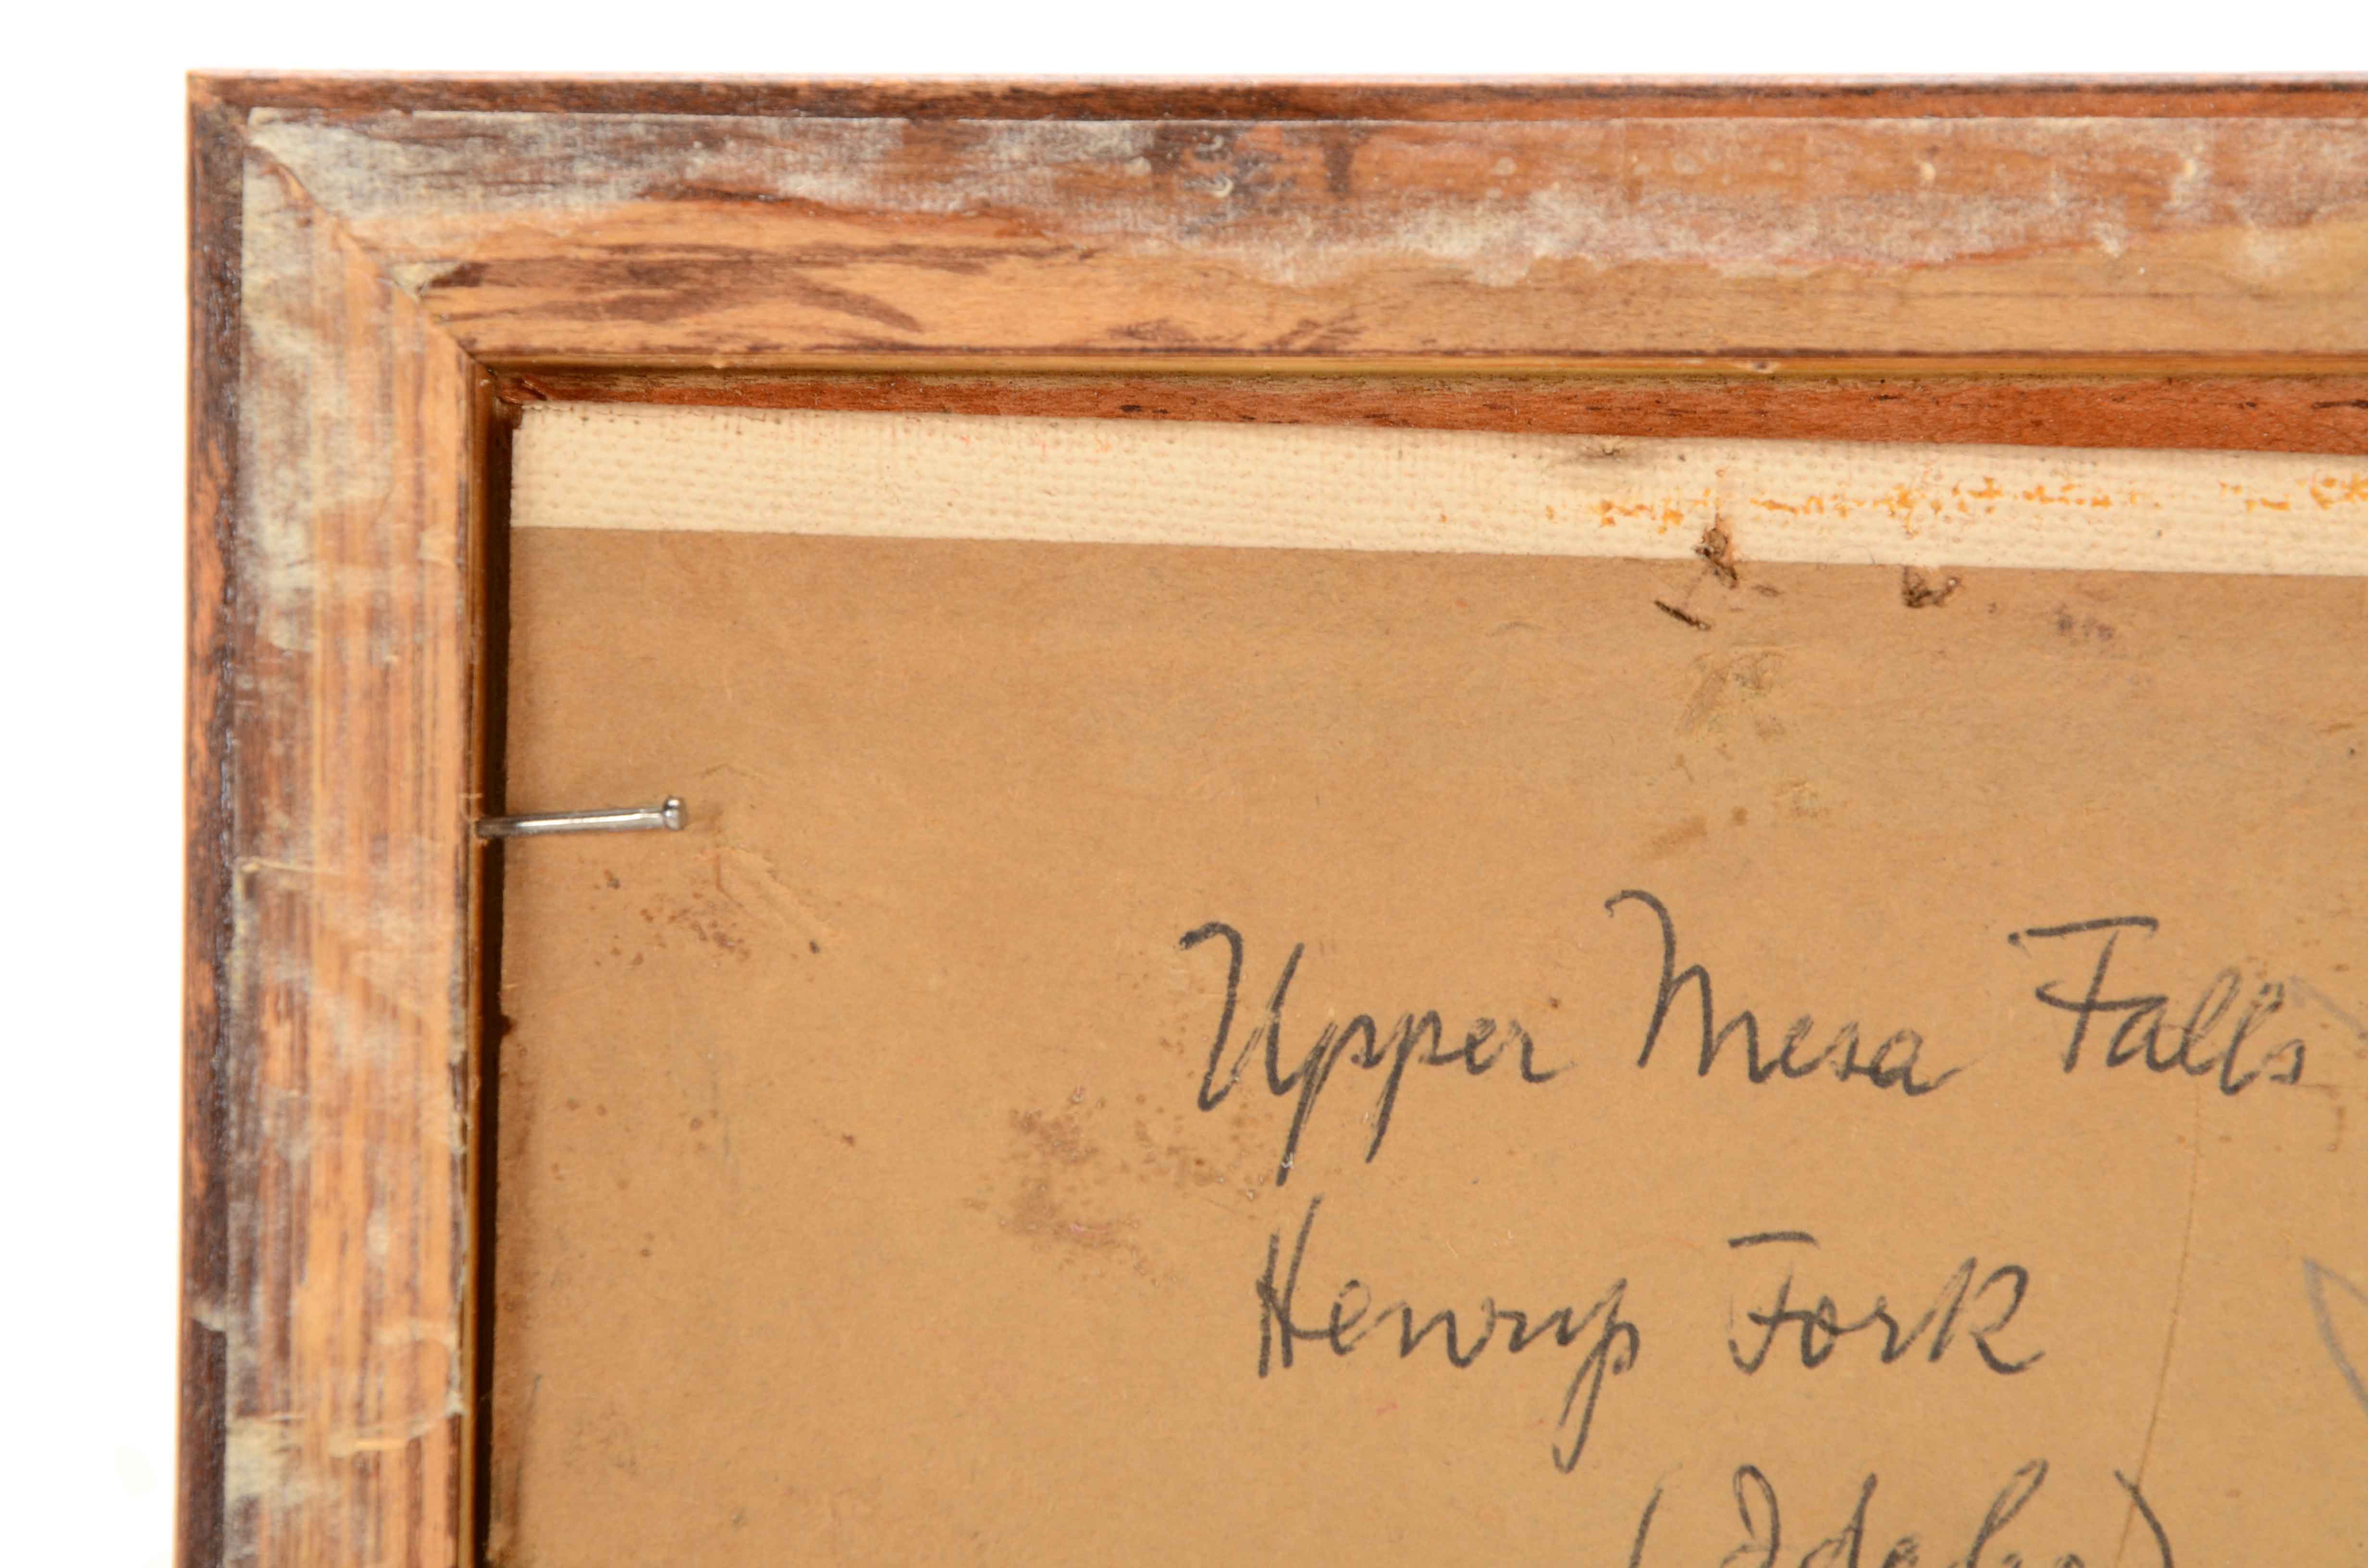 Upper Mesa Falls
Henry Fork
(Idaho)